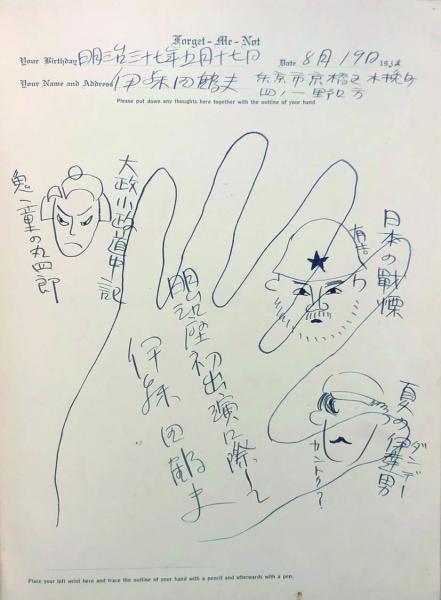 Forget-Me-Not
Your Birthday 明治三十七年五月十七日 Date 8月19日 193
Your Name and Address 伊 田鶴夫 東京市京橋区木挽町
四ノ一 野口方
Please put down any thoughts here together with the outline of your hand
日本の戦慄
有吉
夏の伊達男
ダンデー
カントク?
大政小政道中記
鬼童の丸四郎
明治座初出演に際して
伊 田鶴夫
Place your left wrist here and trace the outline of your hand with a pencil and afterwards with a pen.